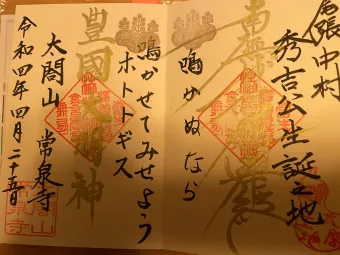 尾張中村
秀吉公生誕之地
鳴かぬなら
鳴かせてみせよう
ホトトギス
豊國大明神
太閤山 常泉寺
令和四年四月二十五日